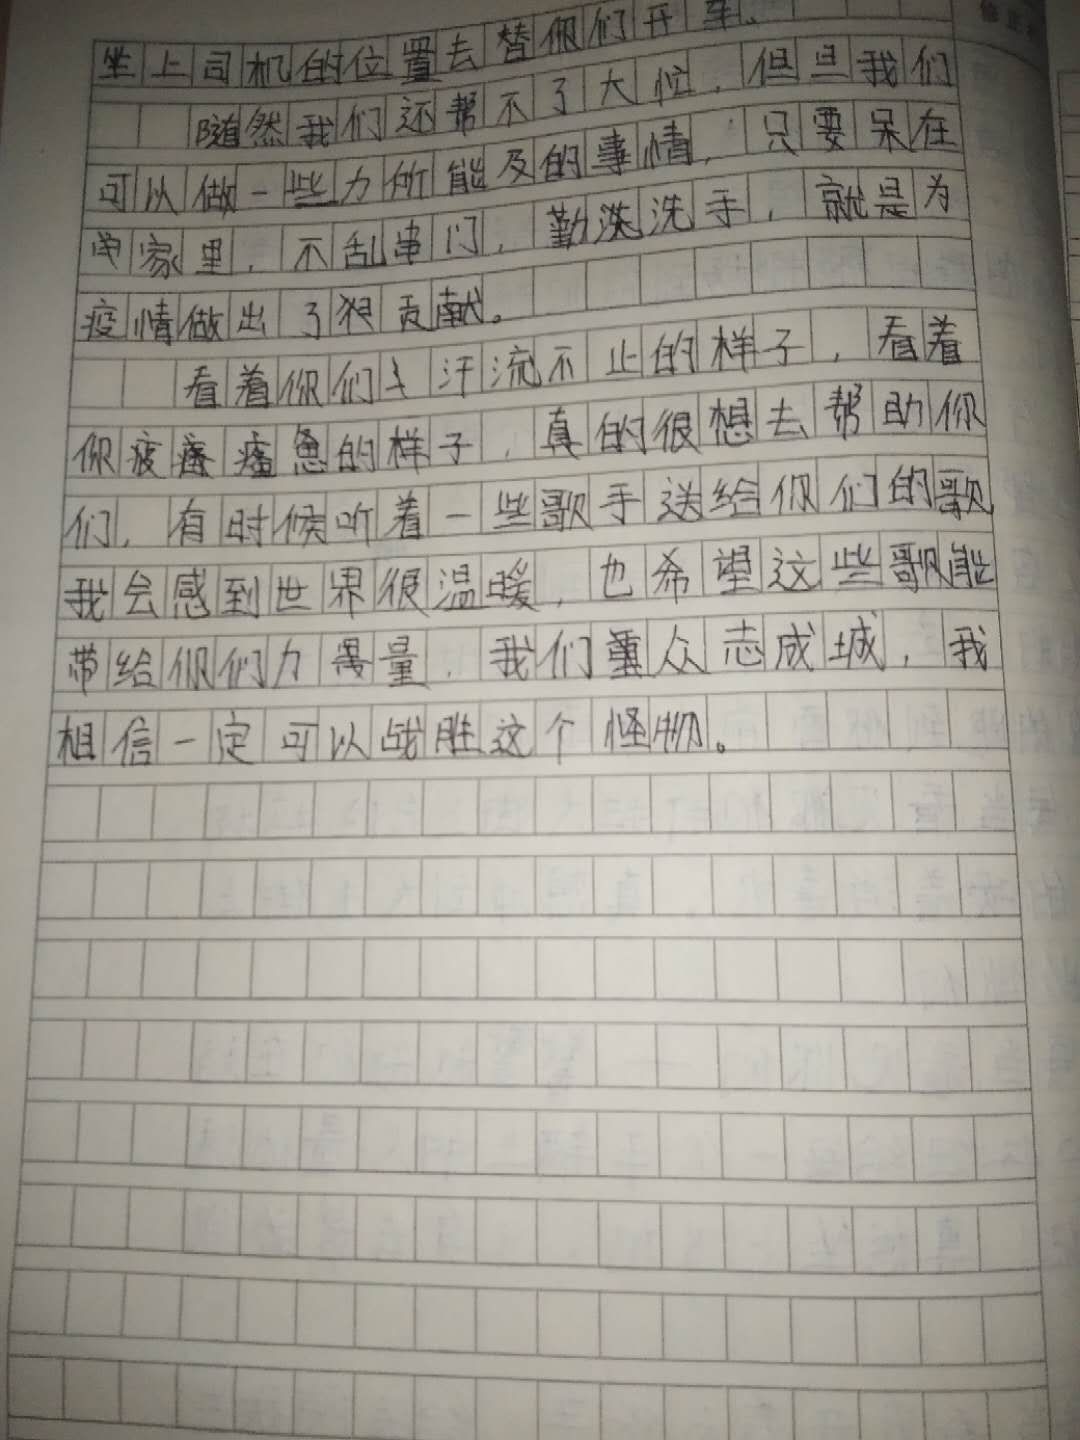 坐上司机的位置去替你们开车。
随然我们还帮不了大忙，但旦我们
可以做一些力所能及的事情，只要呆在
家里，不乱串门，勤洗洗手，就是为
疫情做出了贡献。
看着你们汗流不止的样子，看着
你疲惫的样子，真的很想去帮助你
们，有时候听着一些歌手送给你们的歌
我会感到世界很温暖，也希望这些歌能
带给你们力量，我们众志成城，我
相信一定可以战胜这个怪物。